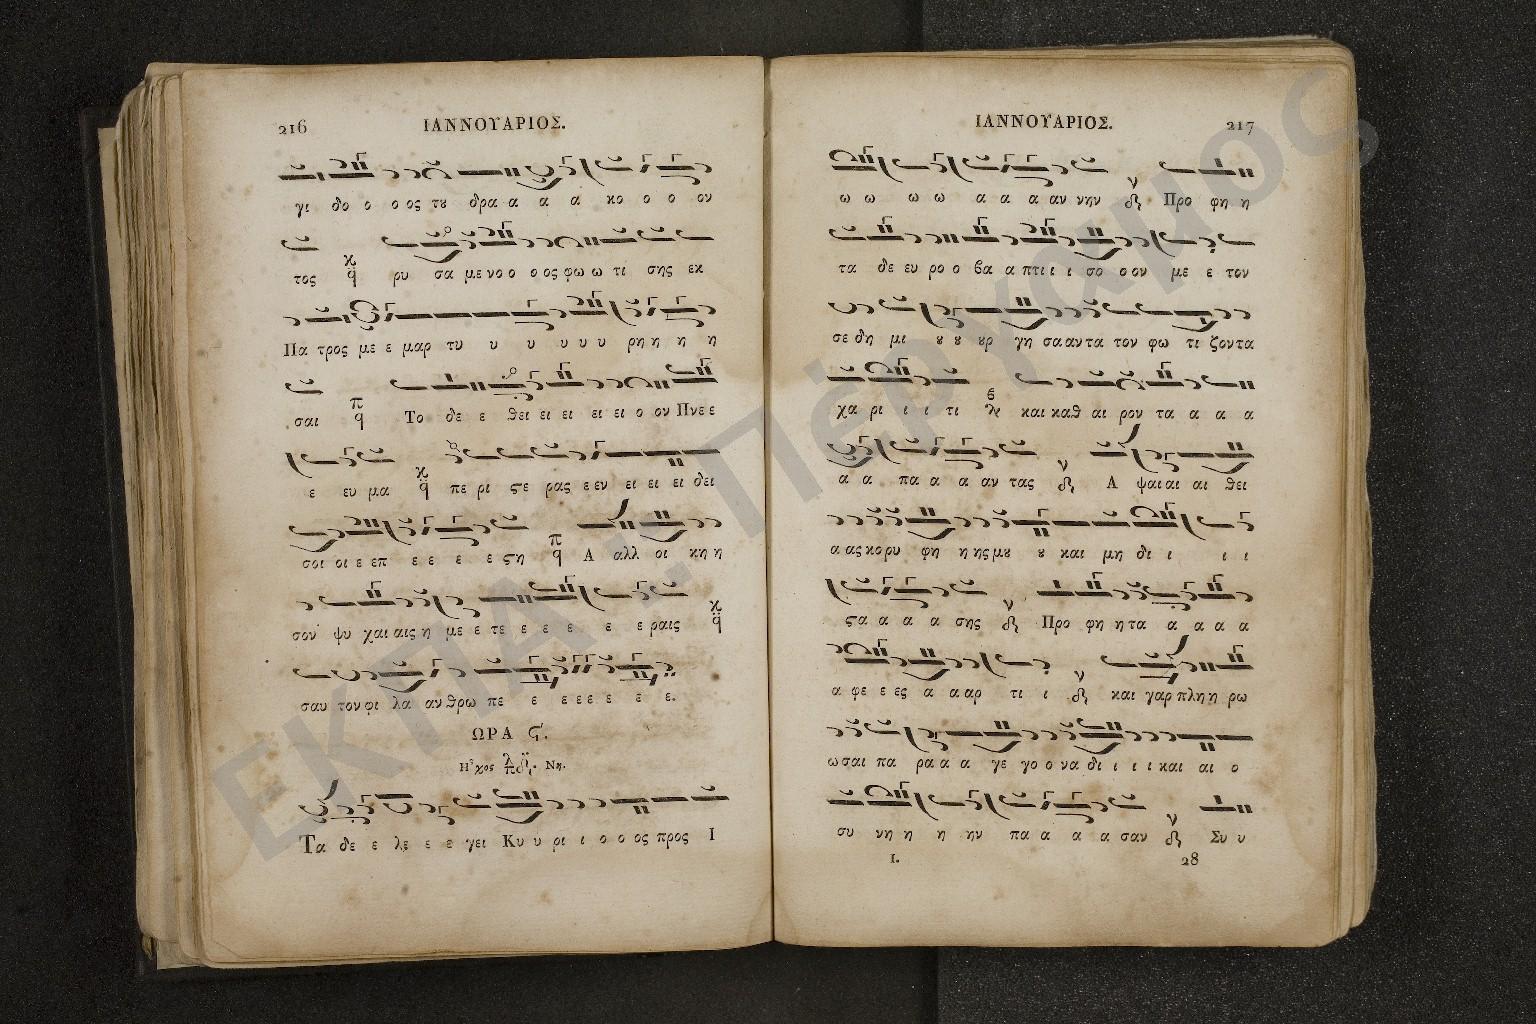 216 ΙΑΝΝΟΥΑΡΙΟΣ.
γι δο ο ο ος τȣ δρα α α α κο ο ο ον
τος ρυ σα με νο ο ο ος φω ω τι σης εκ
Πα τρος με ε μαρ τυ υ υ υ υ ρη η η η
σαι Το δε ε θει ει ει ει ει ο ον Πνε ε
ε ευ μα πε ρι ϛε ρας ε εν ει ει ει δει
σοι οι ε επ ε ε ε ε ϛη Α αλλ οι κη η
σον ψυ χαι αις η με ε τε ε ε ε ε ε ραις
σαυ τον φι λα αν θρω πε ε ε ε ε ε ε ε.
ΩΡΑ Ϛ΄.
Ἦχος πλ δ. Νη.
Τα δε ε λε ε ε γει Κυ υ ρι ι ο ο ος προς Ι
ΙΑΝΝΟΥΑΡΙΟΣ. 217
ω ω ω ω α α α αν νην Προ φη η
τα δε ευ ρο ο βα α πτι ι ι σο ο ον με ε τον
σε δη μι ȣ ȣ ȣρ γη σα αν τα τον φω τι ζοντα
χα ρι ι ι τι και καθ αι ρον τα α α α
α α πα α α αν τας Α ψαι αι αι θει
α ας κο ρυ φη η ης μȣ ȣ και μη δι ι ι ι
ϛα α α α σης Προ φη η τα α α α α
α φε ε ες α α αρ τι ι και γαρ πλη η ρω
ω σαι πα ρα α α γε γο ο να δι ι ι ι και αι ο
συ νη η η ην πα α α α σαν Συ υ
Ι. 28
ΕΚΠΑ : Πέργαμος